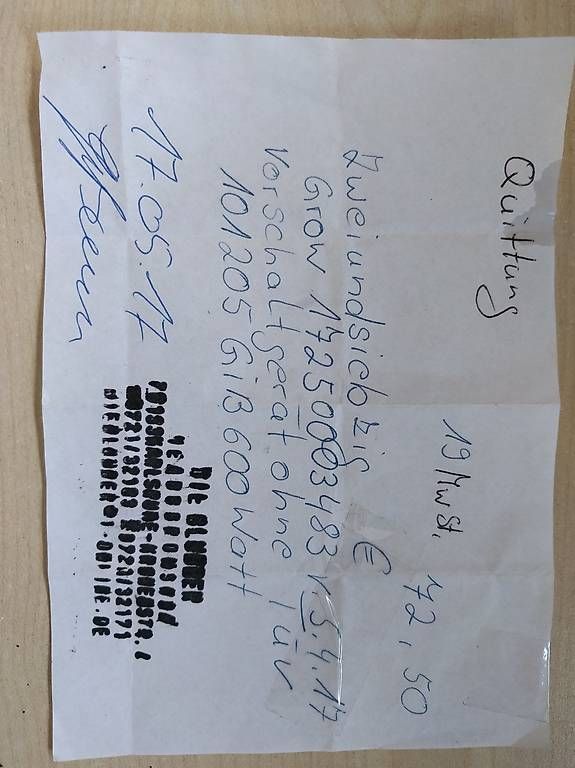 Quittung
19 MwSt. 72,50
Zweiundsiebzig €
Grow 17250003483 v. 5.4.17
Vorschaltgerät ohne Tüv
101205 GiB 600 Watt
17.05.17
DIE BLUMEN
0721/32183 0721/32171